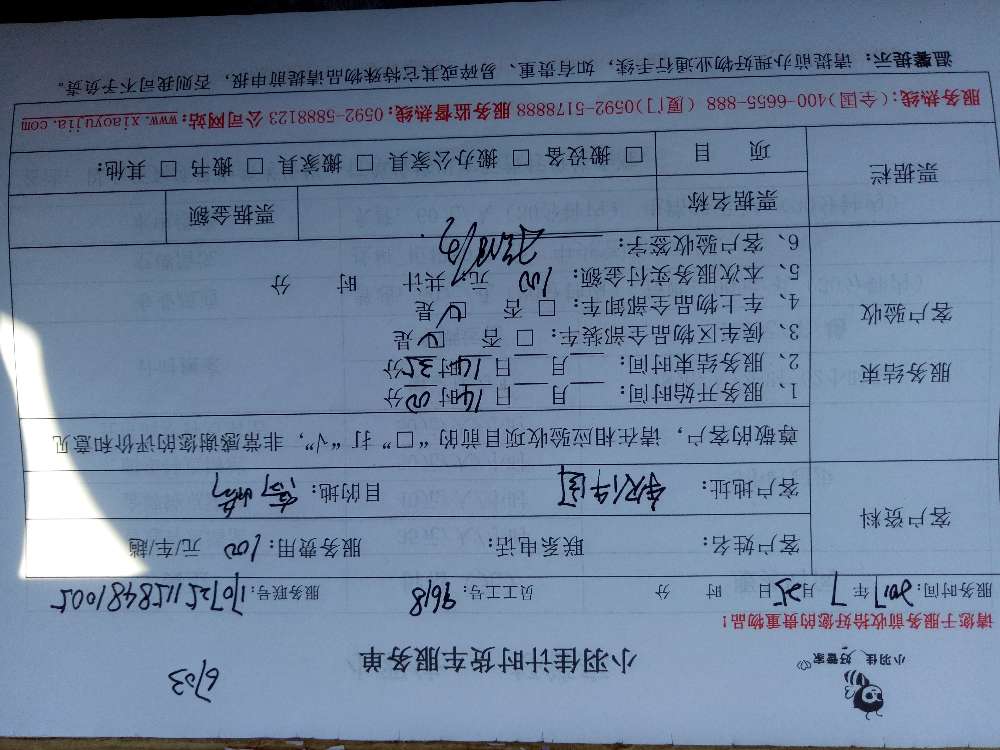 小羽佳 好管家
小羽佳计时货车服务单
6103
请您于服务前收拾好您的贵重物品！
服务时间：2017年7月25日 时 分 员工工号：9618 服务联号：170725115848481005
客户资料
客户姓名： 联系电话： 服务费用：100 元/车/趟
客户地址： 目的地：
尊敬的客户，请在相应验收项目前的“□”打“√”，非常感谢您的评价和意见
服务结束
客户验收
1、服务开始时间：___月___日14时00分
2、服务结束时间：___月___日14时35分
3、候车区物品全部装车：□ 否 ☑ 是
4、车上物品全部卸车：□ 否 ☑ 是
5、本次服务实付金额：100 元；共计 时 分
6、客户验收签字：
票据栏
票据名称 票据金额
项 目 □ 搬设备 □ 搬办公家具 □ 搬家具 □ 搬书 □ 其他：
服务热线：(全国)400-6655-888 (厦门)0592-5178888 服务监督热线：0592-5888123 公司网站：www.xiaoyujia.com
温馨提示：请提前办理好物业通行手续，如有贵重、易碎或其它特殊物品请提前申报，否则我司不予负责。